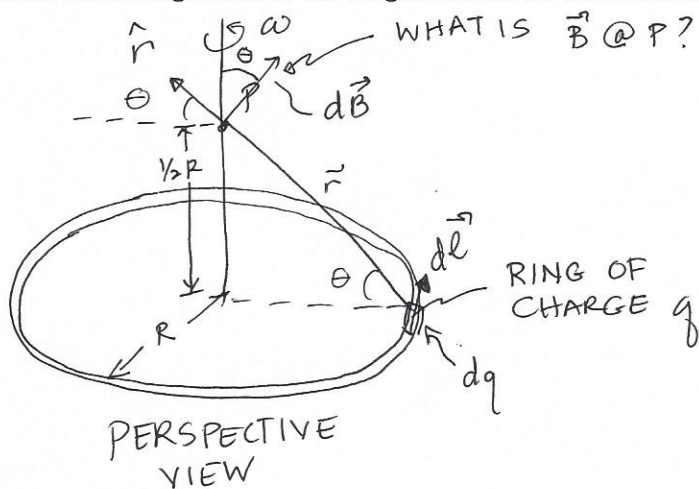 ω
WHAT IS B⃗ @ P?
r̂
θ
θ
P
dB⃗
½R
r⃗
dl⃗
θ
RING OF
CHARGE q
R
dq
PERSPECTIVE
VIEW